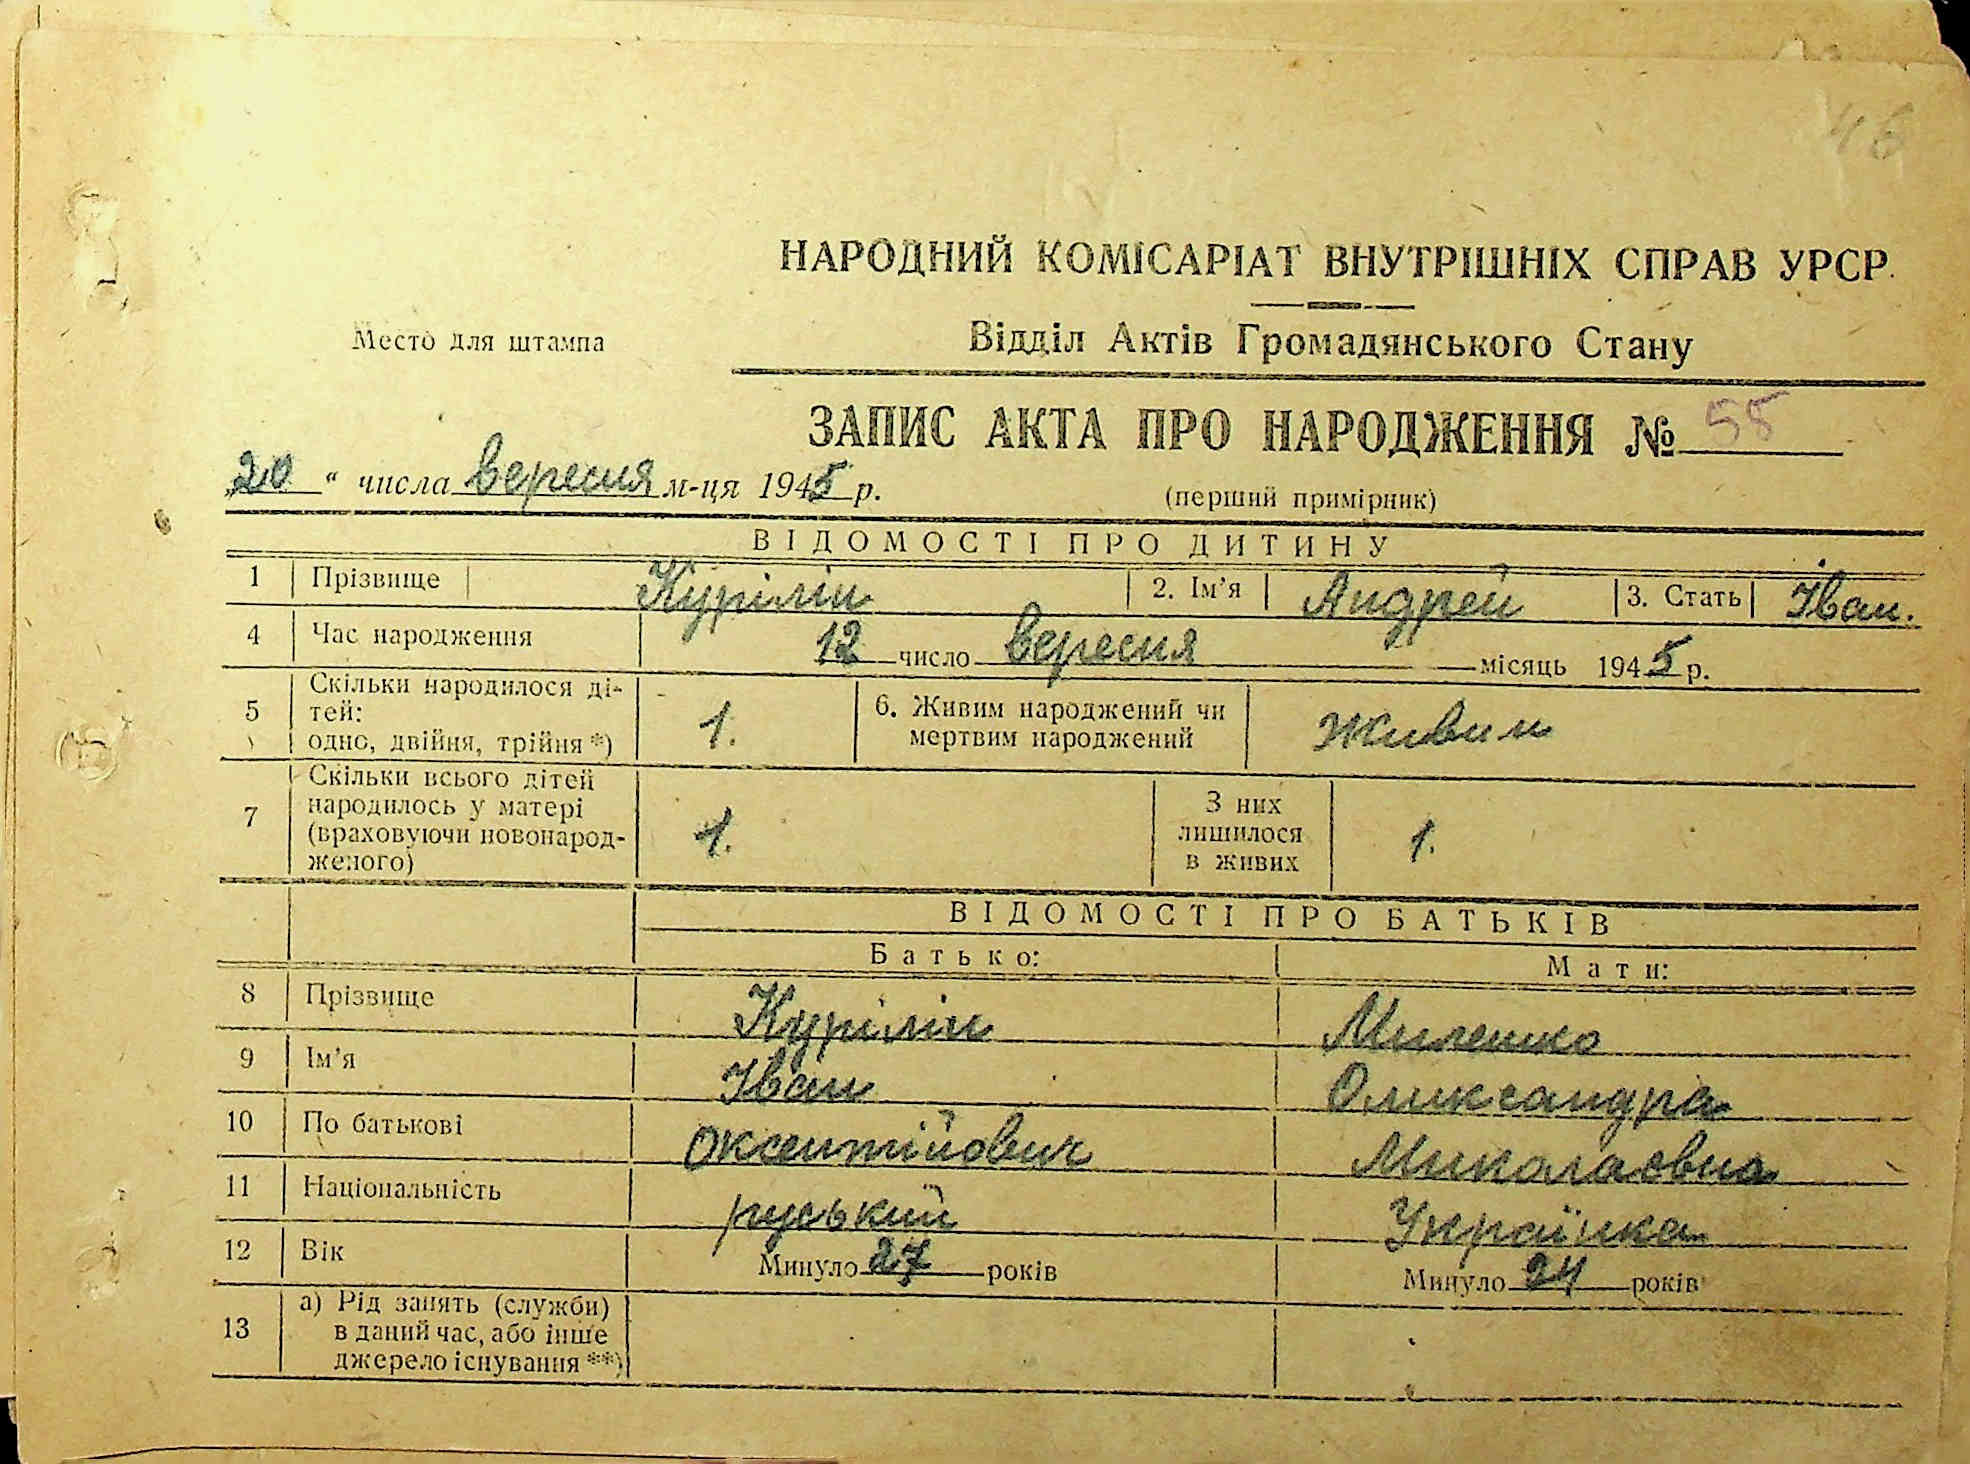 46
НАРОДНИЙ КОМІСАРІАТ ВНУТРІШНІХ СПРАВ УРСР
Место для штампа
Відділ Актів Громадянського Стану
ЗАПИС АКТА ПРО НАРОДЖЕННЯ № 55
„20“ числа вересня м-ця 1945 р.
(перший примірник)
ВІДОМОСТІ ПРО ДИТИНУ
1 Прізвище Курілін 2. Ім’я Андрей 3. Стать Іван.
4 Час народження 12 число вересня місяць 1945 р.
5 Скільки народилося ді-
тей:
одно, двійня, трійня *) 1.
6. Живим народжений чи
мертвим народжений Живим
7 Скільки всього дітей
народилось у матері
(враховуючи новонарод-
женого) 1.
З них
лишилося
в живих 1.
ВІДОМОСТІ ПРО БАТЬКІВ
Батько: Мати:
8 Прізвище Курілін Милешко
9 Ім’я Іван Олександра
10 По батькові Оксентійович Миколаєвна
11 Національність руський Українка
12 Вік Минуло 27 років Минуло 24 років
13 а) Рід занять (служби)
в даний час, або інше
джерело існування **)